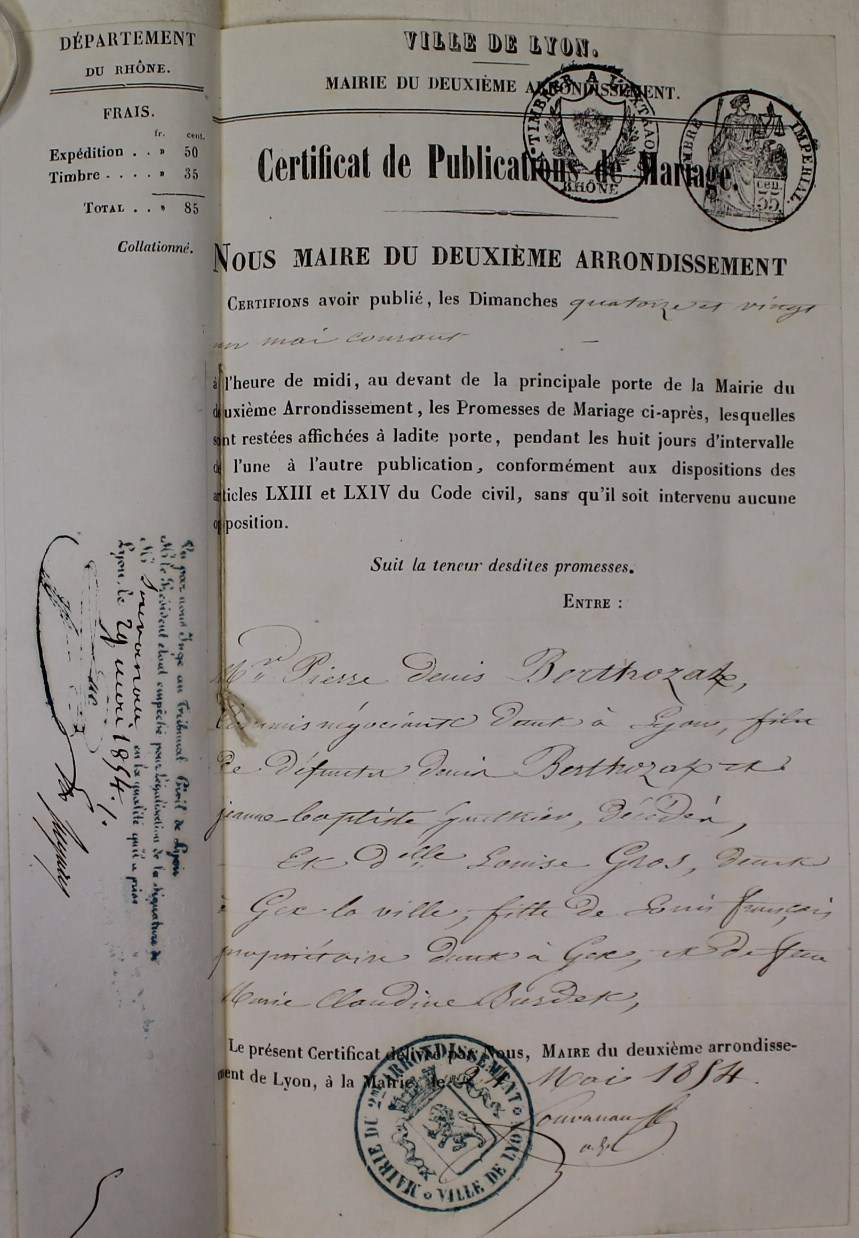 DÉPARTEMENT
DU RHÔNE.
FRAIS.
fr. cent.
Expédition . . » 50
Timbre . . . . » 35
TOTAL . . » 85
Collationné.
VILLE DE LYON.
MAIRIE DU DEUXIÈME ARRONDISSEMENT.
TIMBRE A L'EXTRAORD
RHÔNE
TIMBRE IMPÉRIAL
35 cen.
Certificat de Publications de Mariage.
NOUS MAIRE DU DEUXIÈME ARRONDISSEMENT
CERTIFIONS avoir publié, les Dimanches quatorze et vingt
un mai courant
à l'heure de midi, au devant de la principale porte de la Mairie du
deuxième Arrondissement, les Promesses de Mariage ci-après, lesquelles
sont restées affichées à ladite porte, pendant les huit jours d'intervalle
de l'une à l'autre publication, conformément aux dispositions des
articles LXIII et LXIV du Code civil, sans qu'il soit intervenu aucune
opposition.
Suit la teneur desdites promesses.
ENTRE :
Mr Pierre denis Berthozat,
Commis négociant demt à Lyon, fils
de défunts denis Berthozat et
jeanne baptiste, décédés,
Et delle Louise Gros, demt
à Gex la ville, fille de Louis françois
propriétaire demt à Gex, et de feue
Marie Claudine Burdet,
Le présent Certificat délivré par Nous, MAIRE du deuxième arrondisse-
ment de Lyon, à la Mairie, le Mai 1854.
MAIRIE DU 2me ARRONDISSEMENT
VILLE DE LYON
Vu par nous Juge au Tribunal Civil de Lyon
Mr le Président étant empêché pour légalisation de la signature de
Mr en la qualité qu'il a prise
Lyon, le 29 mai 1854.